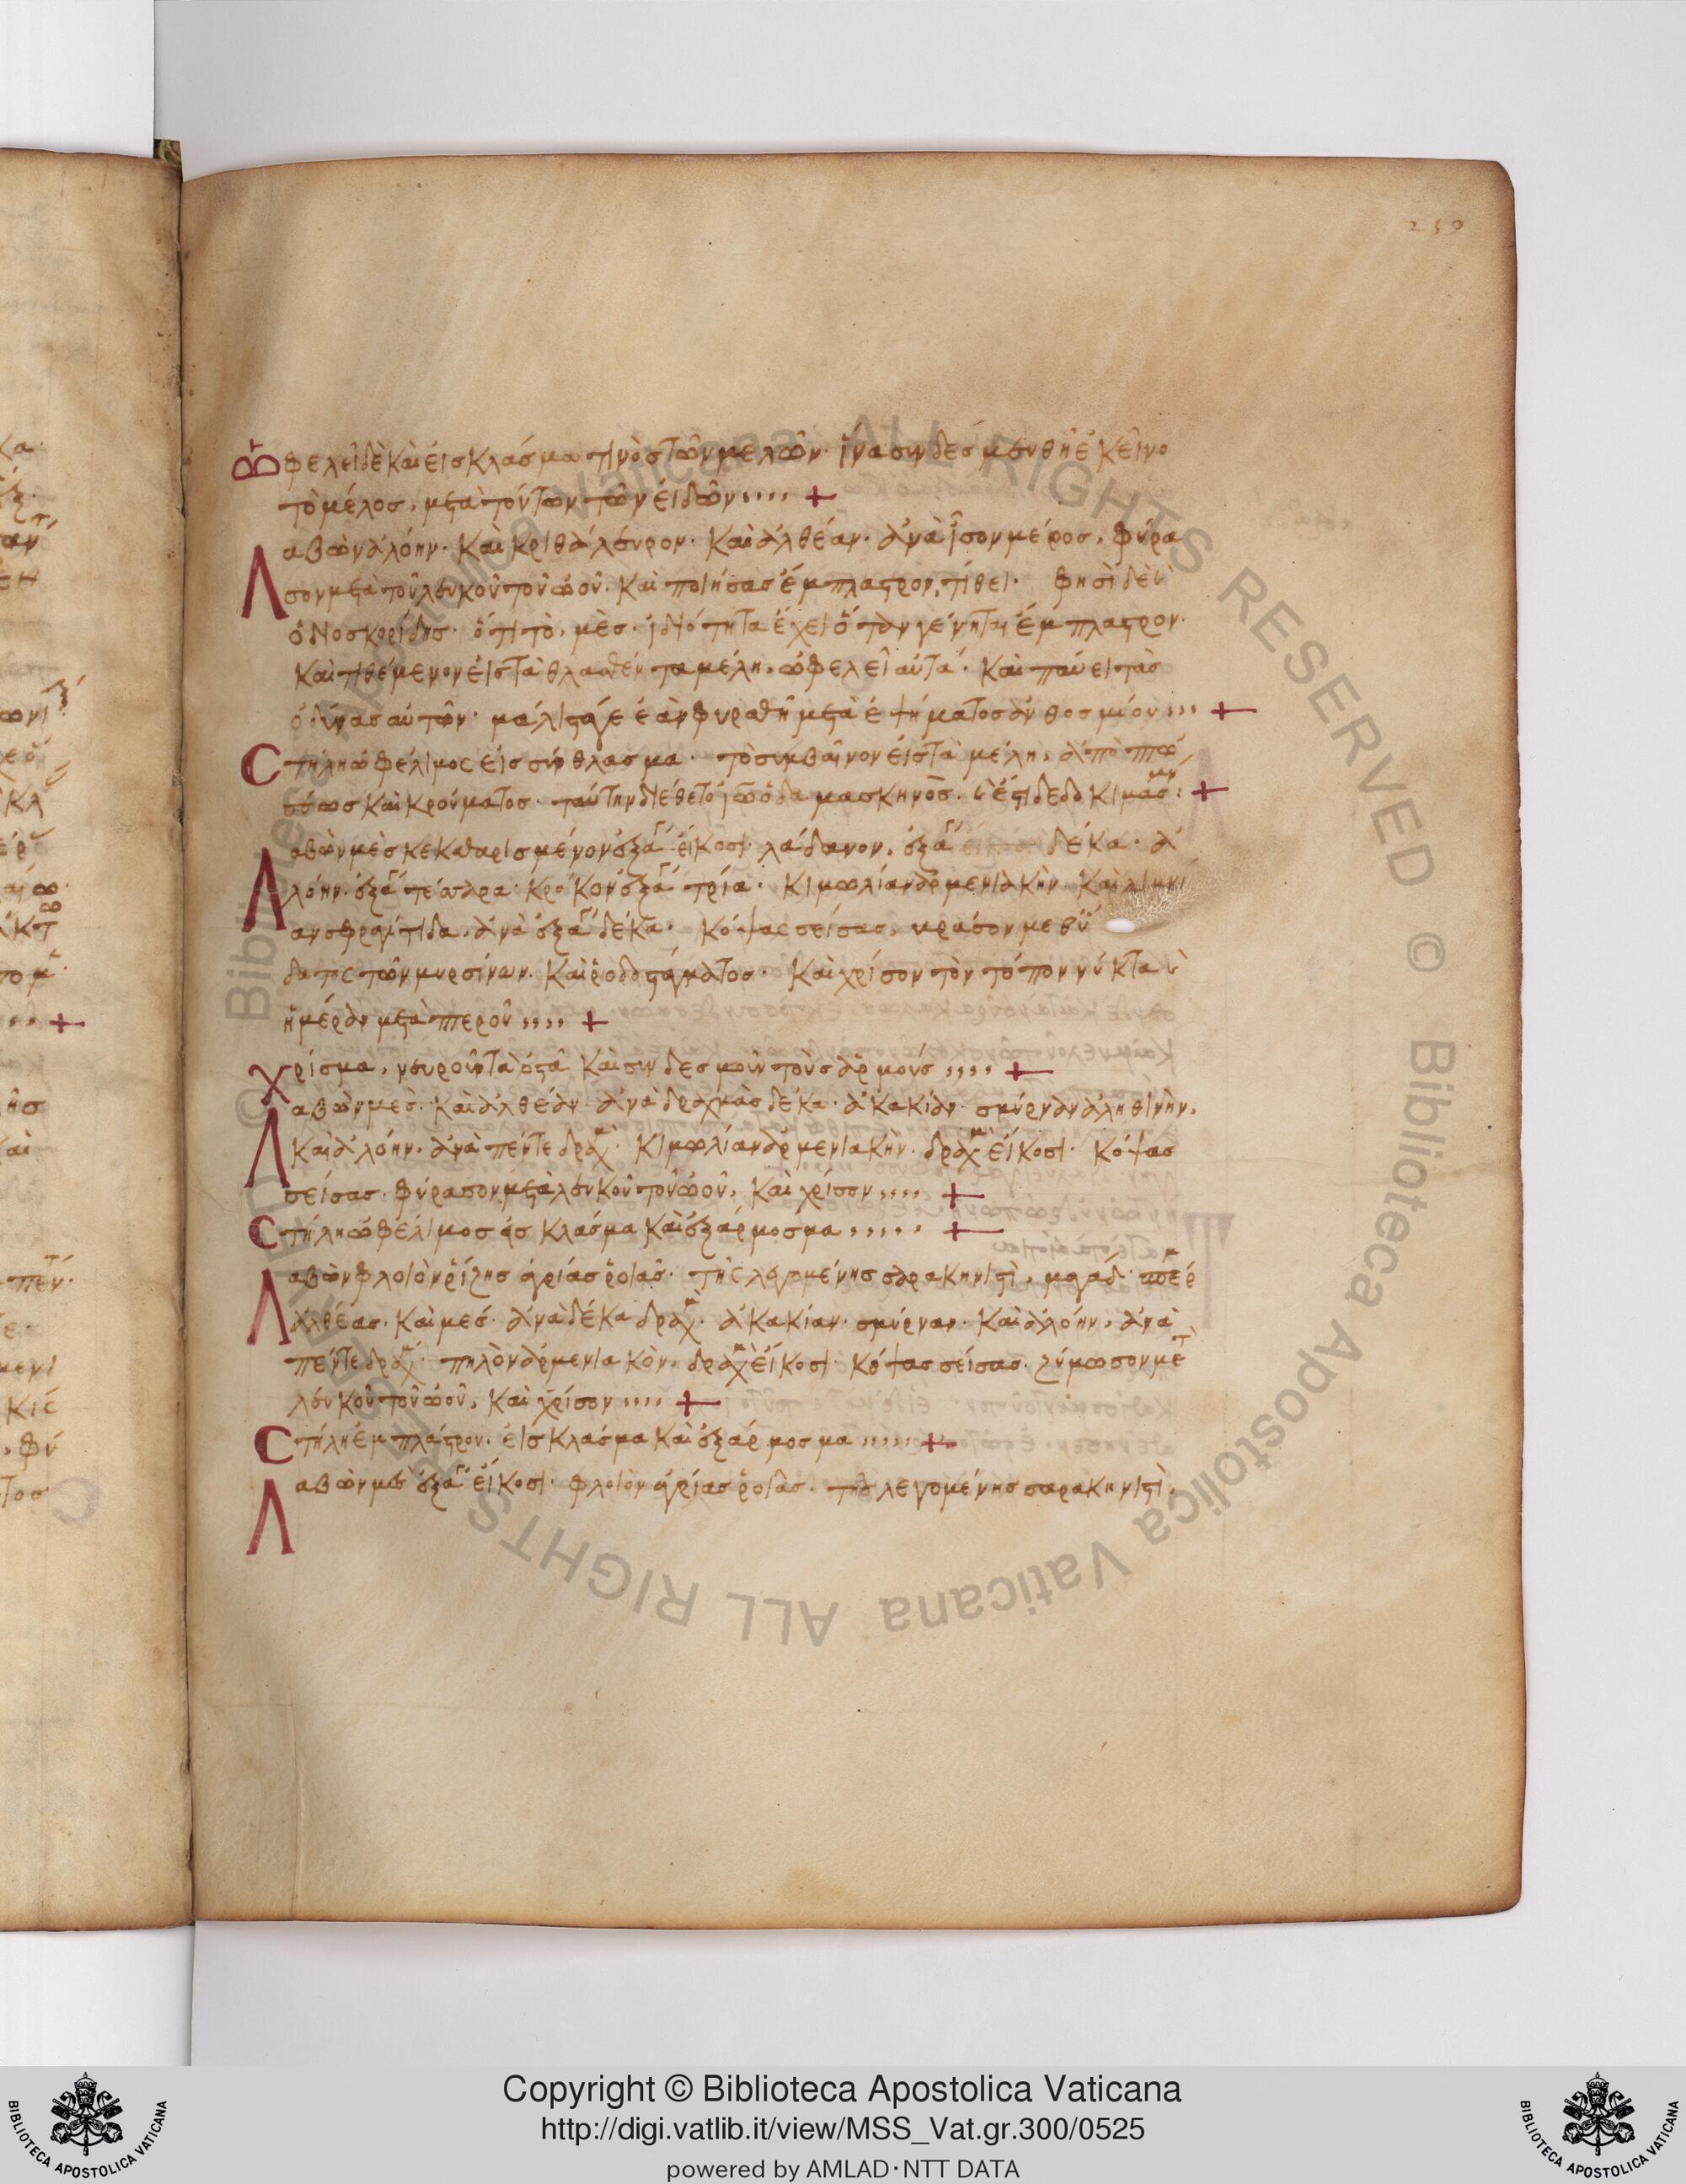 250
φελεῖ δὲ καὶ εἰς κλάσμα τινὸς τῶν μελῶν· ἵνα συνδεσμευθῆ ἐκεῖνο
τὸ μέλος, μετὰ τούτων τῶν εἰδῶν,,,, +
Λαβὼν ἀλόην· καὶ κριθάλευρον· καὶ ἀλθέαν· ἀνὰ ἴσον μέρος, φύρα
σον μετὰ τοῦ λευκοῦ τοῦ ὠοῦ· καὶ ποιήσας ἔμπλαστρον, τίθει· φησὶ δὲ
ὅτι τὸ, μὲς· ἰδιότητα ἔχει ὅταν γένηται ἔμπλαστρον·
καὶ τιθέμενον εἰς τὰ θλασθέντα μέλη, ὠφελεῖ αὐτά· καὶ παύει τὰς
ὀδύνας αὐτῶν· μάλιστά γε ἐὰν φυραθῆ μετὰ ἑψήματος ἀνθοσμίου,,, +
Στήλη ὠφέλιμος εἰς σύνθλασμα· τὸ συμβαῖνον εἰς τὰ μέλη, ἀπὸ πτώ
σεως καὶ κρούματος· ταύτην διέθετο δαμασκηνός· +
Λαβὼν μὲς κεκαθαρισμένον ἑξάγ εἴκοσι· λάδανον, ἑξάγ δέκα· ἀ
λόην· ἑξάγ τέσσαρα· κρόκον ἑξάγ τρία· κιμωλίαν ἀρμενιακήν· καὶ λημνί
αν σφραγίτιδα, ἀνὰ ἑξάγ δέκα· κόψας σείσας,
δατος τῶν μυρσίνων· καὶ ῥοδοστάγματος· καὶ χρίσον τὸν τόπον νύκτα
ἡμέραν μετὰ πτεροῦ,,,, +
Χρίσμα, νευροῦν τὰ ὀστᾶ καὶ συνδεσμοῦν τοὺς ἁρμούς,,,, +
Λαβὼν μὲς· καὶ ἀλθέαν· ἀνὰ δραχμὰς δέκα· ἀκακίαν· σμύρναν ἀληθινὴν,
καὶ ἀλόην· ἀνὰ πέντε δραχμ· κιμωλίαν ἀρμενιακὴν· δραχμ εἴκοσι· κόψας
σείσας· φύρασον μετὰ λευκοῦ τοῦ ὠοῦ, καὶ χρίσον,,,, +
Στήλη ὠφέλιμος εἰς κλάσμα καὶ ἐξάρμοσμα,,,,, +
Λαβὼν φλοιὸν ῥίζης ἀγρίας ῥοιᾶς· τῆς λεγομένης σαρακηνιστὶ,
ἀλθέας· καὶ μές· ἀνὰ δέκα δραχμ· ἀκακίαν· σμύρναν· καὶ ἀλόην, ἀνὰ
πέντε δραχμ· πηλὸν ἀρμενιακόν, δραχμ εἴκοσι· κόψας σείσας· ζύμωσον μετὰ
λευκοῦ τοῦ ὠοῦ, καὶ χρίσον,,,, +
Στήλη ἔμπλαστρον· εἰς κλάσμα καὶ ἐξάρμοσμα,,,, +
Λαβὼν μὲς ἑξάγ εἴκοσι· φλοιὸν ἀγρίας ῥοιᾶς· τῆς λεγομένης σαρακηνιστὶ,
© Biblioteca Apostolica Vaticana ALL RIGHTS RESERVED © Biblioteca Apostolica Vaticana ALL RIGHTS RESERVED
Copyright © Biblioteca Apostolica Vaticana
http://digi.vatlib.it/view/MSS_Vat.gr.300/0525
powered by AMLAD·NTT DATA
BIBLIOTECA APOSTOLICA VATICANA
BIBLIOTECA APOSTOLICA VATICANA